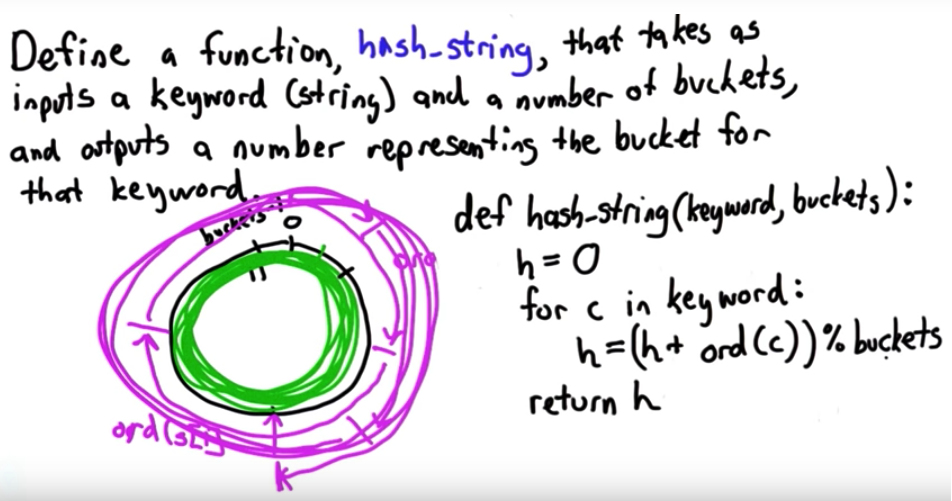 Define a function, hash-string, that takes as
inputs a keyword (string) and a number of buckets,
and outputs a number representing the bucket for
that keyword.
buckets
0
ord(s[i])
k
def hash-string(keyword, buckets):
h = 0
for c in keyword:
h = (h + ord(c)) % buckets
return h